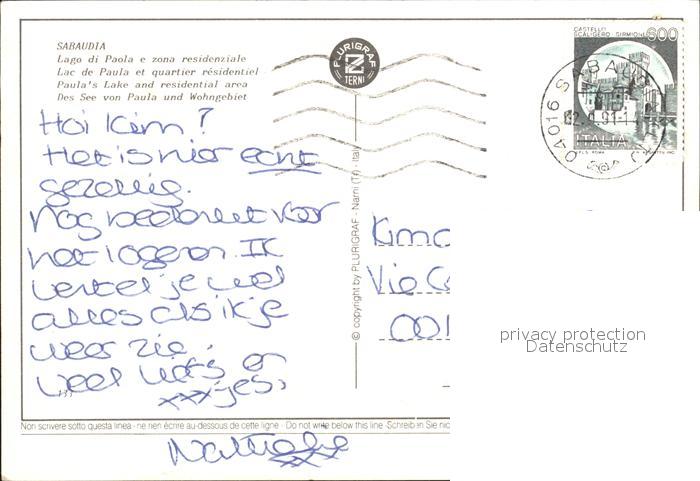 SABAUDIA
Lago di Paola e zona residenziale
Lac de Paula et quartier résidentiel
Paula's Lake and residential area
Des See von Paula und Wohngebiet
PLURIGRAF
TERNI
CASTELLO
SCALIGERO - SIRMIONE
600
ITALIA
04016 SABAUDIA
Hoi Kim?
Het is hier echt
gezellig.
Nog bedankt voor
het logeren. Ik
vertel je wel
alles als ik je
weer zie.
Veel liefs en
xxxjes,
Nathalie
xxx
© copyright by PLURIGRAF - Narni (Tr) - Italy
Kim
Via
001
privacy protection
Datenschutz
Non scrivere sotto questa linea - ne rien écrire au-dessous de cette ligne - Do not write below this line - Schreiben Sie nic